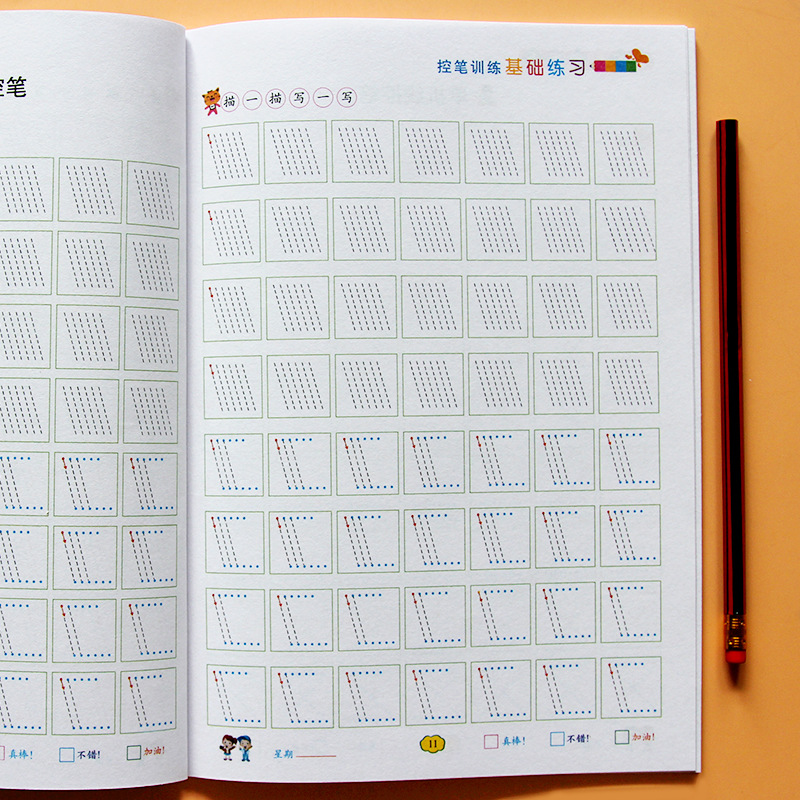 控笔
真棒! 不错! 加油!
控笔训练 基础练习
描一描写一写
星期 11 真棒! 不错! 加油!